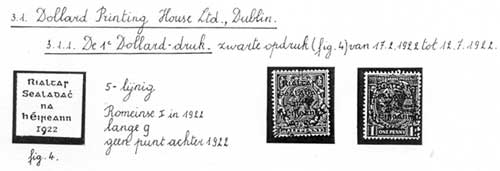 3.1. Dollard Printing House Ltd., Dublin.
3.1.1. De 1e Dollard-druk. zwarte opdruk (fig. 4) van 17.2.1922 tot 12.7.1922.
Rialtas
Sealadać
na
hÉireann
1922
5-lijnig
Romeinse I in 1922
lange 9
geen punt achter 1922
fig. 4.
HALFPENNY
1 ONE PENNY 1